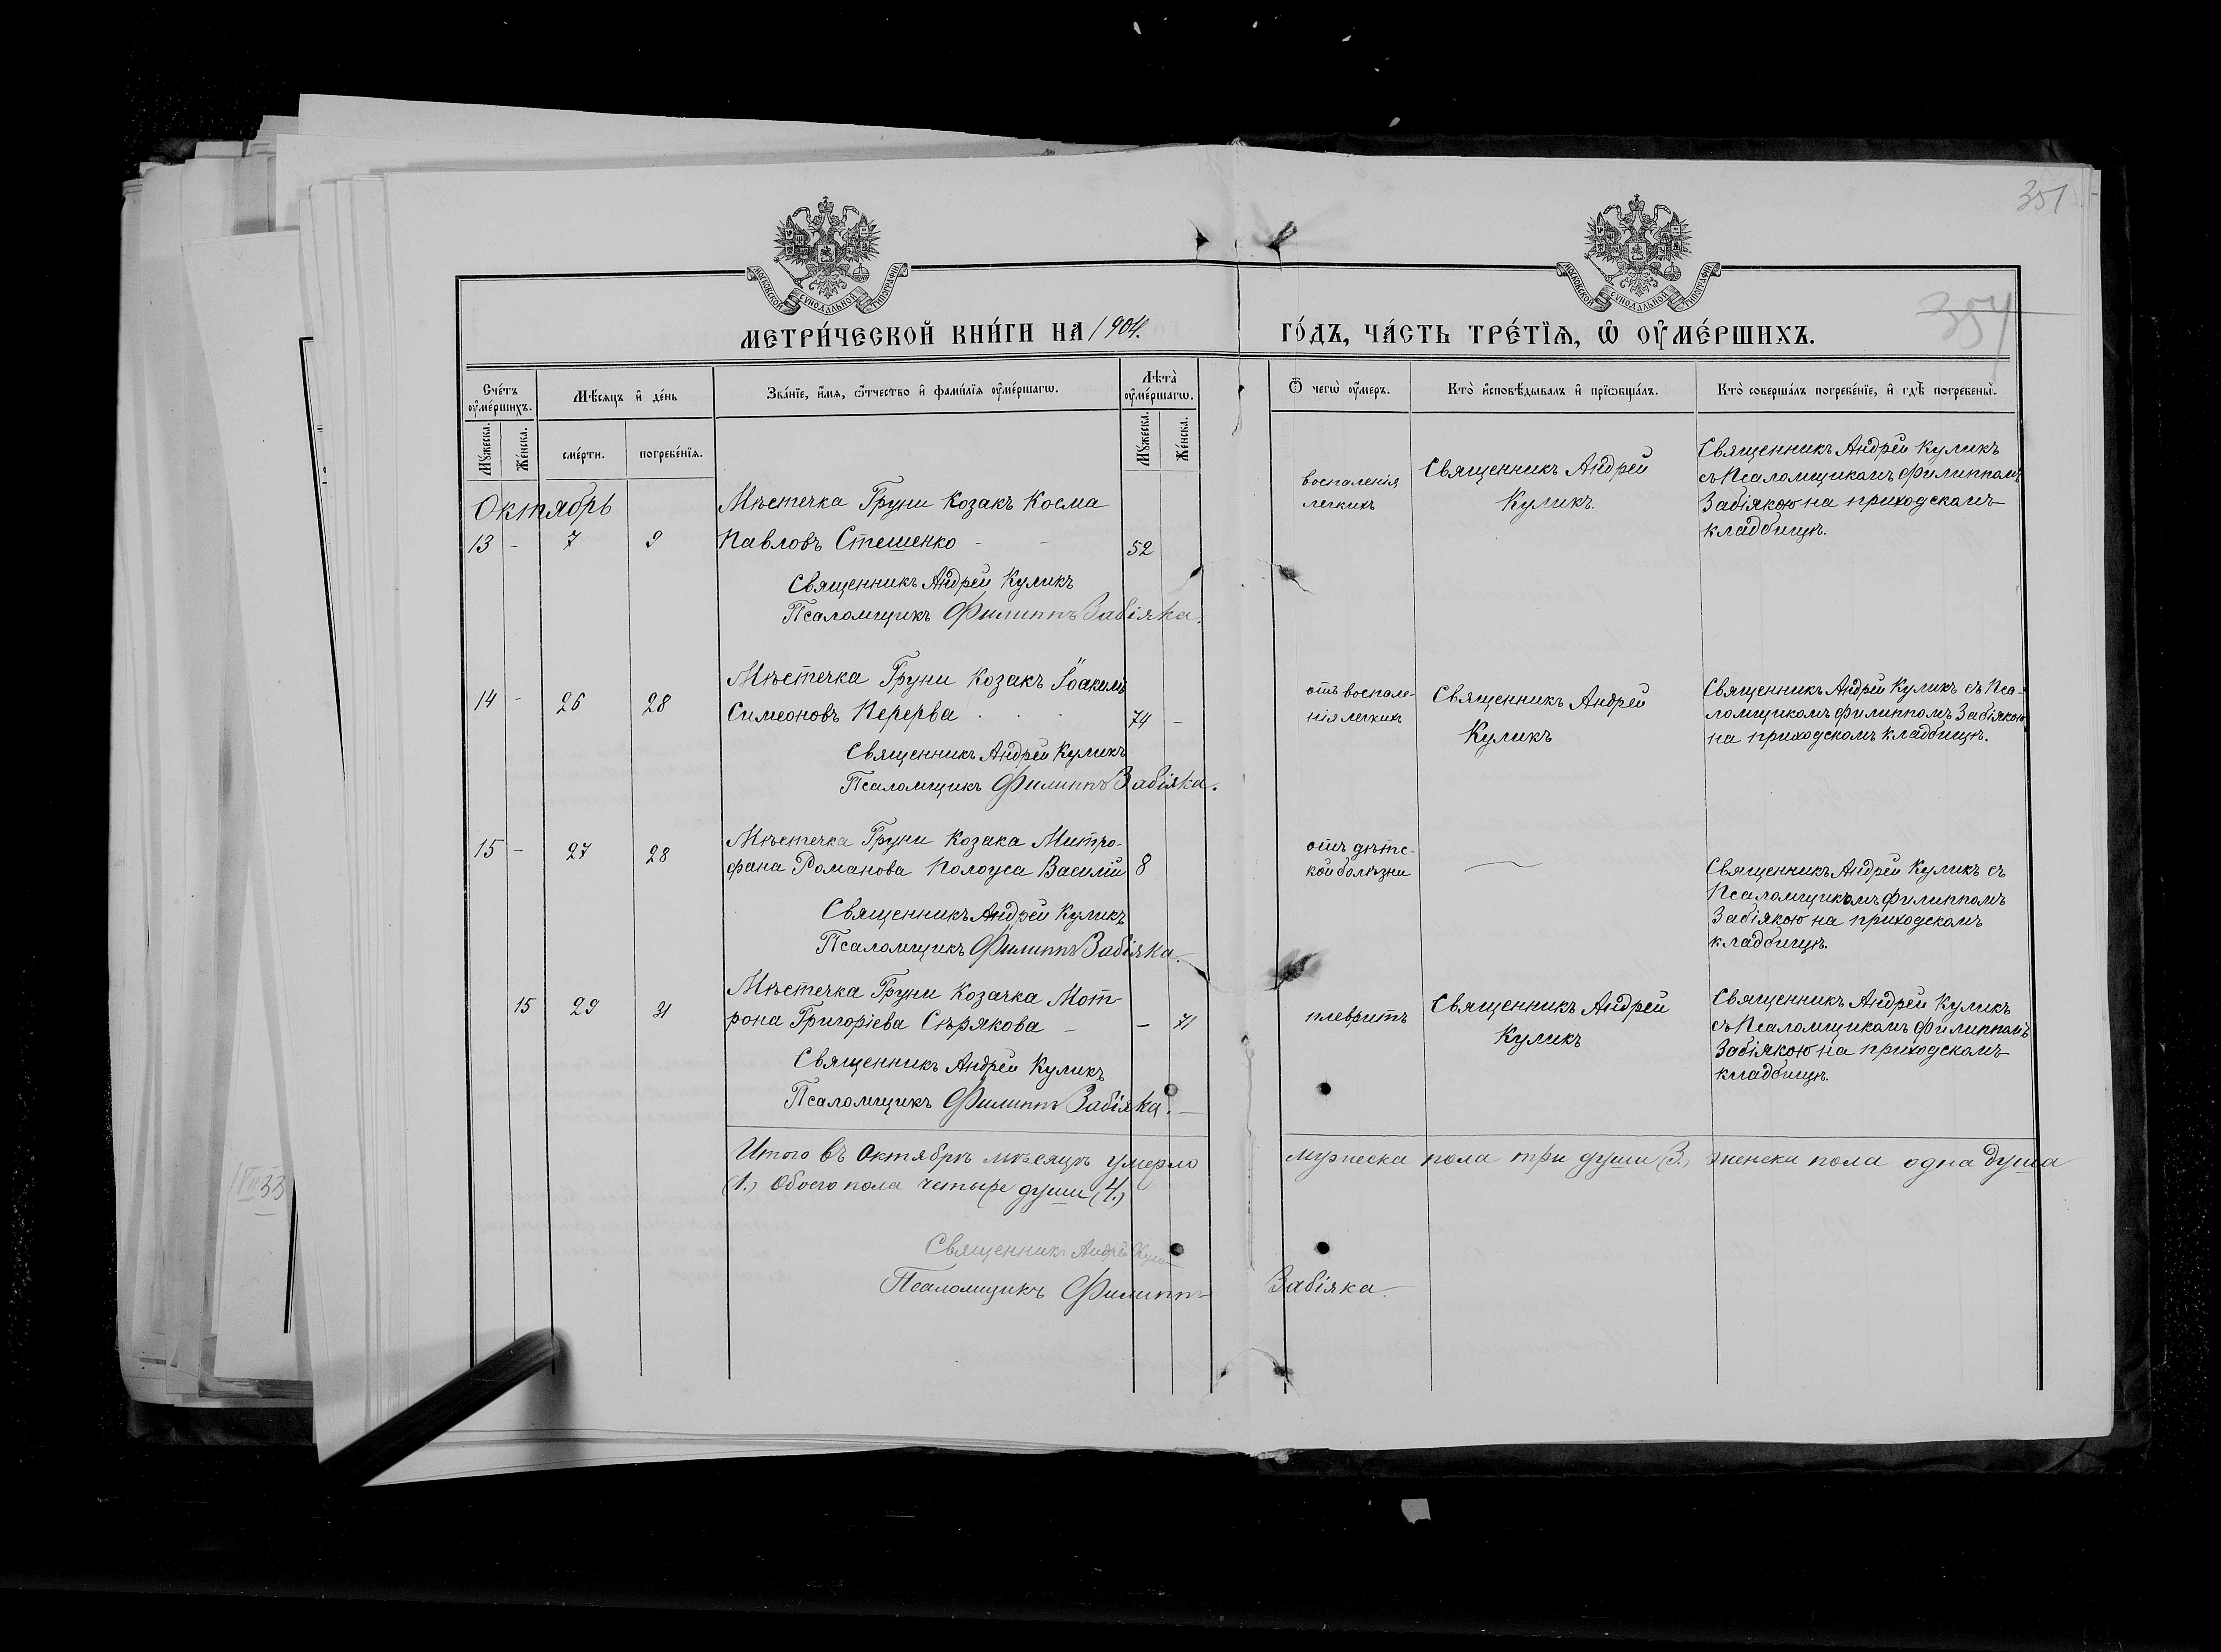 351
354
МОСКОВСКОЙ СУНОДАЛЬНОЙ ТИПОГРАФІИ
МОСКОВСКОЙ СУНОДАЛЬНОЙ ТИПОГРАФІИ
МЕТРИ́ЧЕСКОЙ КНИ́ГИ НА 1904.
ГО́ДЪ, ЧА́СТЬ ТРЕ́ТІѦ, Ѡ҆ ОУ҆МЕ́РШИХЪ.
Сче́тъ оу҆ме́ршихъ.
Мꙋ́жеска.
Же́нска.
Мѣ́сяцъ и҆ де́нь
сме́рти.
погребе́нїѧ.
Зва́нїе, и҆́мѧ, ѻ҆́тчество и҆ фами́лїѧ оу҆ме́ршагѡ.
Лѣта̀ оу҆ме́ршагѡ.
Мꙋ́жеска.
Же́нска.
Ѿ чегѡ̀ оу҆́меръ.
Кто̀ и҆сповѣ́дывалъ и҆ прїѡбща́лъ.
Кто̀ соверша́лъ погребе́нїе, и҆ гдѣ̀ погребены̀.
Октябрь
Мѣстечка Груни Козакъ Косма
13 - 7 9 Павловъ Стешенко - - 52
Священникъ Андрей Куликъ
Псаломщикъ Филиппъ Забіяка.
воспаленія
легкихъ
Священникъ Андрей
Куликъ.
Священникъ Андрей Куликъ
съ Псаломщикомъ Филиппомъ
Забіякою на приходскомъ
кладбищѣ.
Мѣстечка Груни Козакъ Іоакимъ
14 - 26 28 Симеоновъ Перерва 74 -
Священникъ Андрей Куликъ
Псаломщикъ Филиппъ Забіяка.
отъ воспале-
нія легкихъ
Священникъ Андрей
Куликъ
Священникъ Андрей Куликъ съ Пса-
ломщикомъ Филиппомъ Забіякою
на приходскомъ кладбищѣ.
Мѣстечка Груни Козака Митро-
15 - 27 28 фана Романова Колоуса Василій 8
Священникъ Андрей Куликъ
Псаломщикъ Филиппъ Забіяка.
отъ дѣтс-
кой болѣзни
—
Священникъ Андрей Куликъ съ
Псаломщикомъ Филиппомъ
Забіякою на приходскомъ
кладбищѣ.
Мѣстечка Груни Козачка Мот-
15 29 31 рона Григоріева Сѣрякова - - 71
Священникъ Андрей Куликъ
Псаломщикъ Филиппъ Забіяка.
плевритъ
Священникъ Андрей
Куликъ
Священникъ Андрей Куликъ
съ Псаломщикомъ Филиппомъ
Забіякою на приходскомъ
кладбищѣ.
Итого въ Октябрѣ мѣсяцѣ умерло мужеска пола три души (3.) женска пола одна душа
(1.) Обоего пола четыре души (4.)
Священникъ Андрей Куликъ
Псаломщикъ Филиппъ Забіяка.